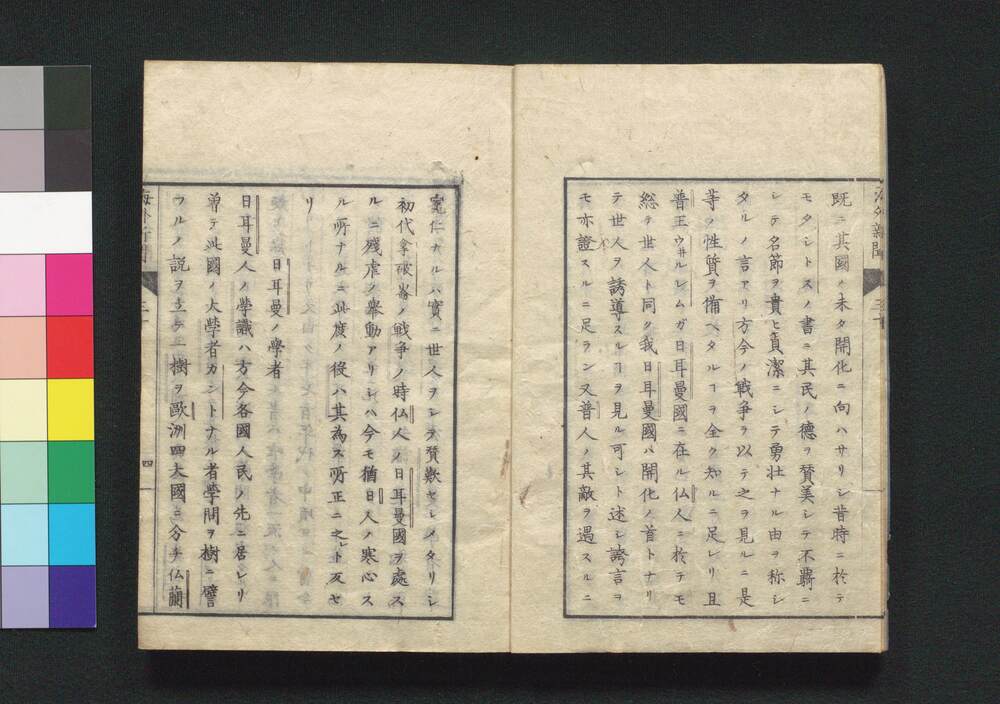 既ニ其國ノ未タ開化ニ向ハサリシ昔時ニ於テ
モタシトスノ書ニ其民ノ德ヲ賛美シテ不羈ニ
シテ名節ヲ貴ヒ貞潔ニシテ勇壮ナル由ヲ称シ
タルノ言アリ方今ノ戦争ヲ以テ之ヲ見ルニ是
等ノ性質ヲ備ヘタルヿヲ全ク知ルニ足レリ且
普王ウヰルレムガ日耳曼國ニ在ル仏人ニ於テモ
総テ世人ト同ク我日耳曼國ハ開化ノ首トナリ
テ世人ヲ誘導スルヿヲ見ル可シト述シ誇言ヲ
モ亦證スルニ足ラン又普人ノ其敵ヲ遇スルニ
寛仁ナルハ實ニ世人ヲシテ賛歎セシメタリシ
初代拿破崙ノ戦争ノ時仏人ノ日耳曼國ヲ處ス
ルニ残虐ノ舉動アリシハ今モ猶日人ノ寒心ス
ル所ナルニ此度ノ役ハ其為ス所正ニ之ト反セ
リ
日耳曼ノ學者
日耳曼人ノ學識ハ方今各國人民ノ先ニ居レリ
曽テ此國ノ大学者カントナル者學問ヲ樹ニ譬
フルノ説ヲ立テ一樹ヲ歐洲四大國ニ分チ仏蘭
海外新聞
四